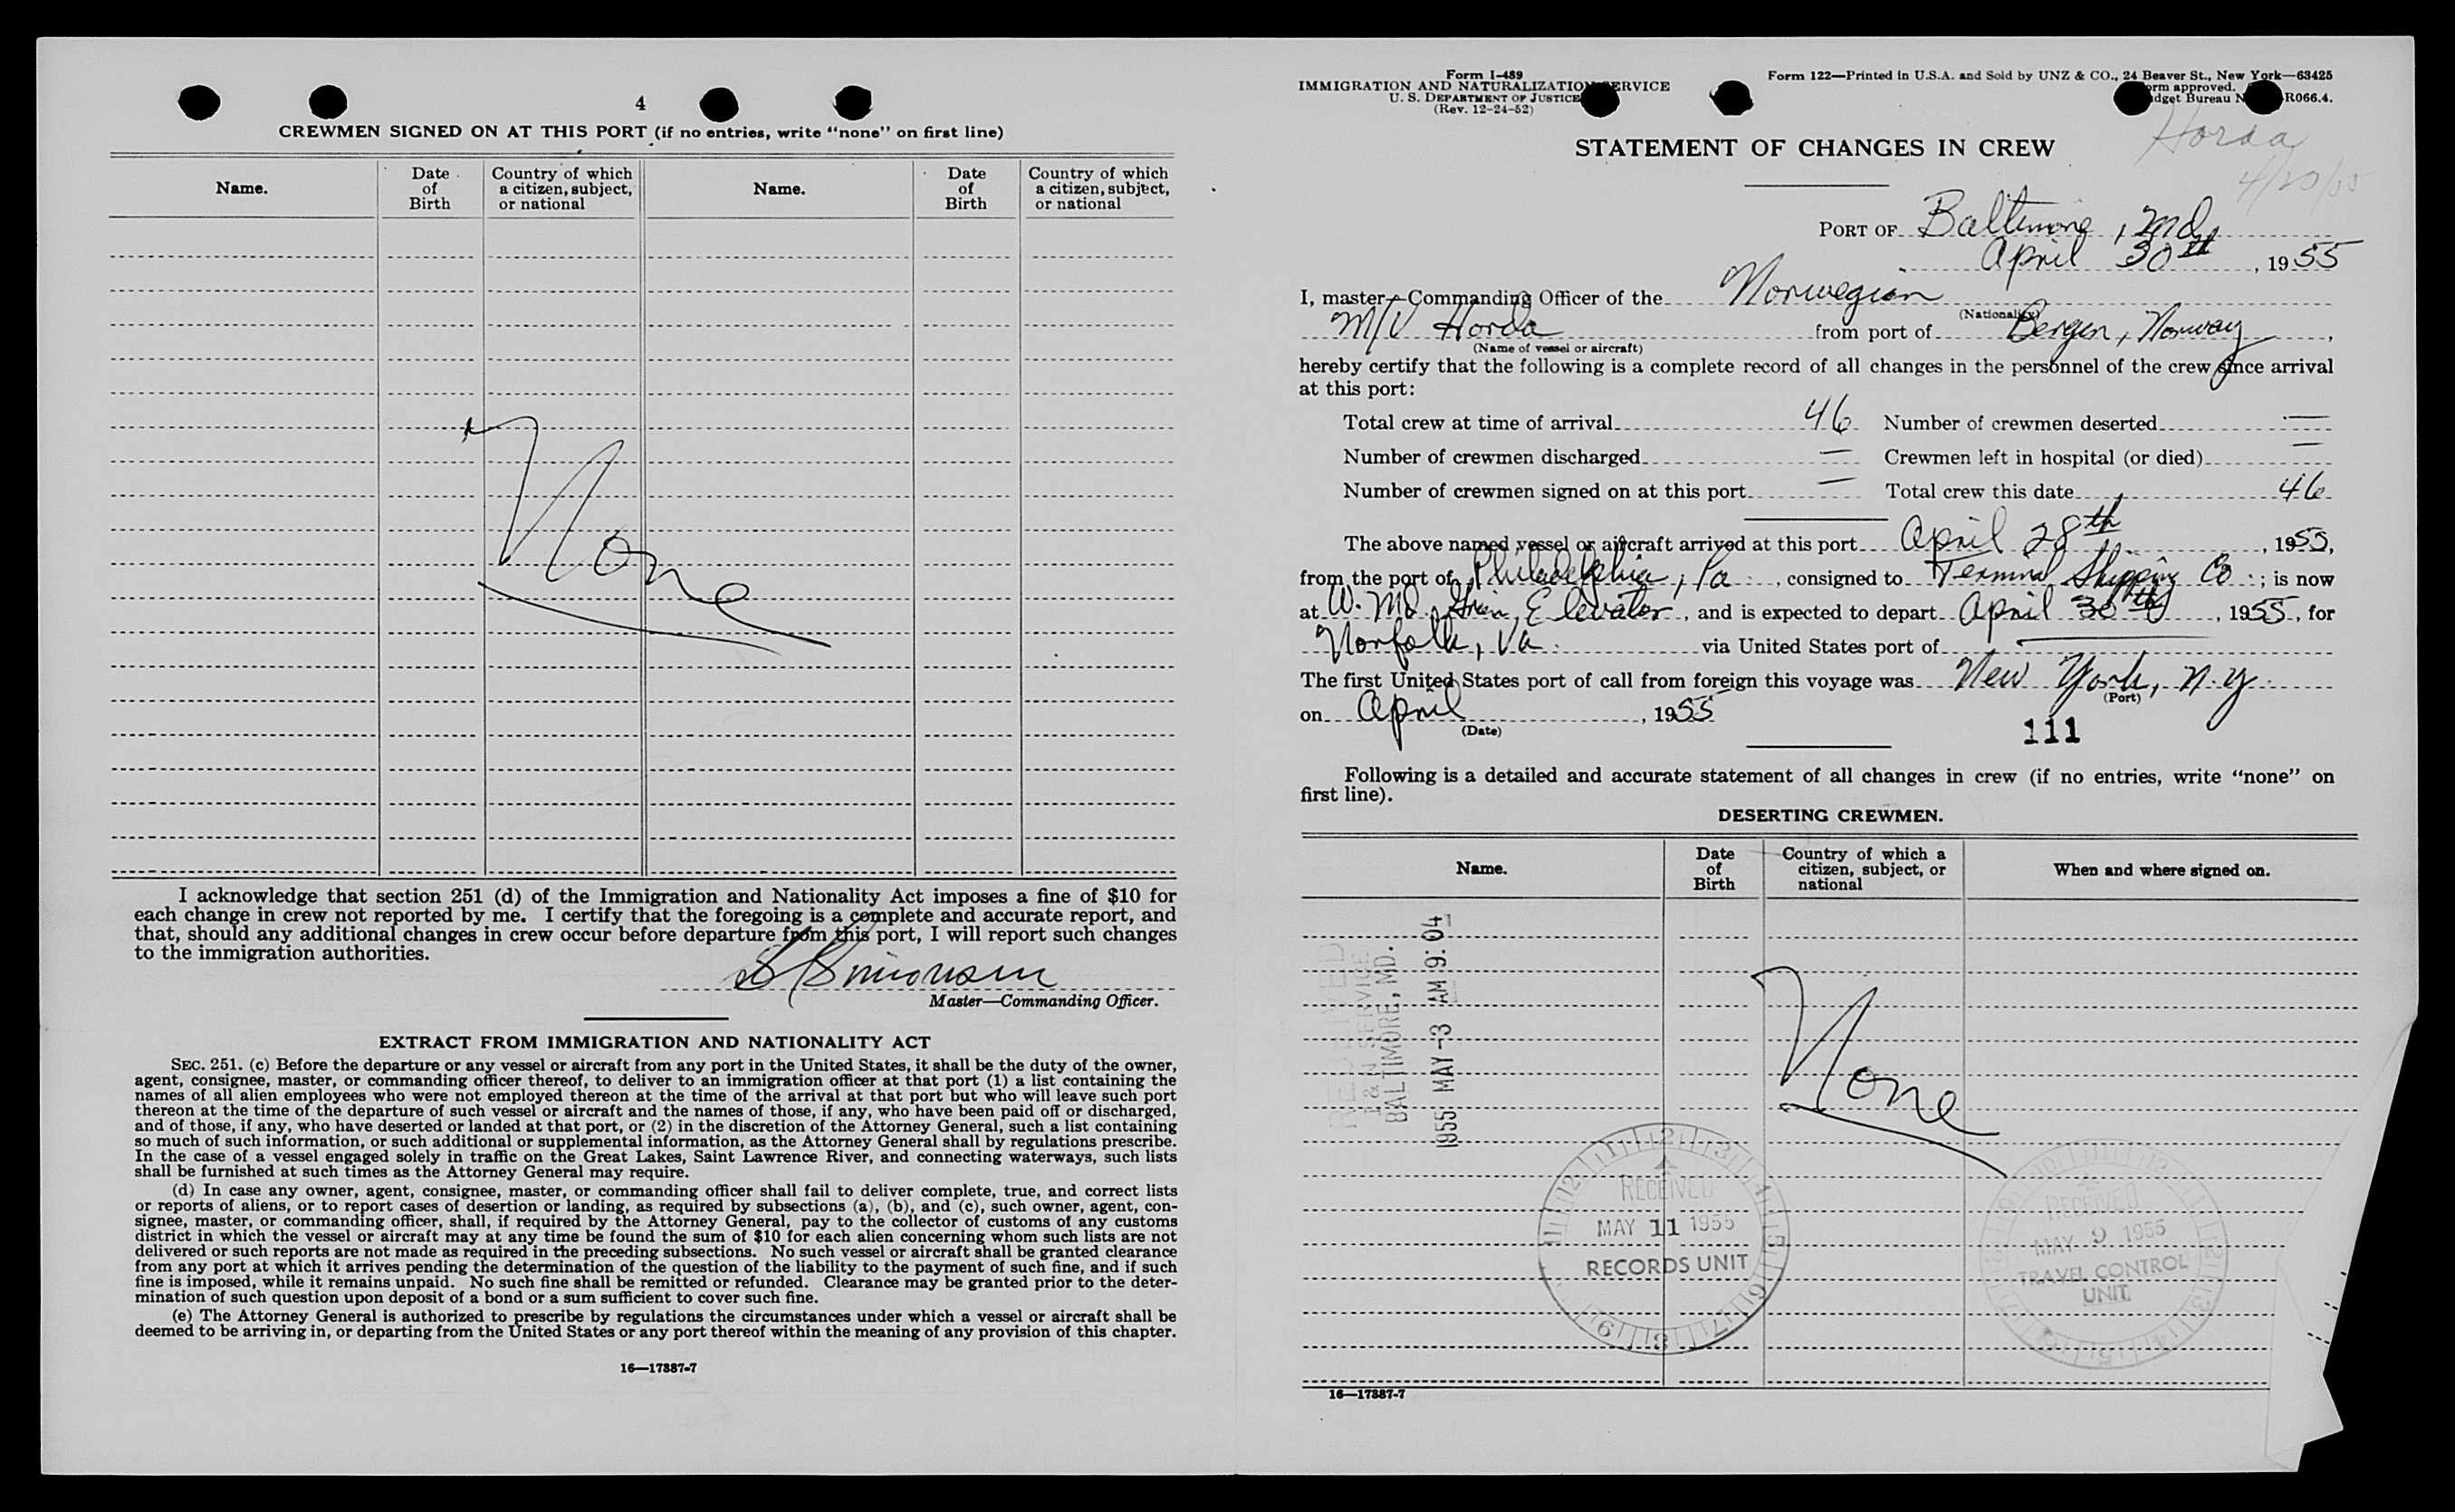 4
CREWMEN SIGNED ON AT THIS PORT (if no entries, write "none" on first line)
Name. Date of Birth Country of which a citizen, subject, or national Name. Date of Birth Country of which a citizen, subject, or national
None
I acknowledge that section 251 (d) of the Immigration and Nationality Act imposes a fine of $10 for
each change in crew not reported by me. I certify that the foregoing is a complete and accurate report, and
that, should any additional changes in crew occur before departure from this port, I will report such changes
to the immigration authorities.
Master—Commanding Officer.
EXTRACT FROM IMMIGRATION AND NATIONALITY ACT
SEC. 251. (c) Before the departure or any vessel or aircraft from any port in the United States, it shall be the duty of the owner,
agent, consignee, master, or commanding officer thereof, to deliver to an immigration officer at that port (1) a list containing the
names of all alien employees who were not employed thereon at the time of the arrival at that port but who will leave such port
thereon at the time of the departure of such vessel or aircraft and the names of those, if any, who have been paid off or discharged,
and of those, if any, who have deserted or landed at that port, or (2) in the discretion of the Attorney General, such a list containing
so much of such information, or such additional or supplemental information, as the Attorney General shall by regulations prescribe.
In the case of a vessel engaged solely in traffic on the Great Lakes, Saint Lawrence River, and connecting waterways, such lists
shall be furnished at such times as the Attorney General may require.
(d) In case any owner, agent, consignee, master, or commanding officer shall fail to deliver complete, true, and correct lists
or reports of aliens, or to report cases of desertion or landing, as required by subsections (a), (b), and (c), such owner, agent, con-
signee, master, or commanding officer, shall, if required by the Attorney General, pay to the collector of customs of any customs
district in which the vessel or aircraft may at any time be found the sum of $10 for each alien concerning whom such lists are not
delivered or such reports are not made as required in the preceding subsections. No such vessel or aircraft shall be granted clearance
from any port at which it arrives pending the determination of the question of the liability to the payment of such fine, and if such
fine is imposed, while it remains unpaid. No such fine shall be remitted or refunded. Clearance may be granted prior to the deter-
mination of such question upon deposit of a bond or a sum sufficient to cover such fine.
(e) The Attorney General is authorized to prescribe by regulations the circumstances under which a vessel or aircraft shall be
deemed to be arriving in, or departing from the United States or any port thereof within the meaning of any provision of this chapter.
16—17887-7
Form I-489
IMMIGRATION AND NATURALIZATION SERVICE
U. S. DEPARTMENT OF JUSTICE
(Rev. 12-24-52)
Form 122—Printed in U.S.A. and Sold by UNZ & CO., 24 Beaver St., New York—63425
Form approved.
Budget Bureau R066.4.
Horda
4/20/55
STATEMENT OF CHANGES IN CREW
PORT OF Baltimore, Md.
April 30th, 1955
I, master—Commanding Officer of the Norwegian
(Nationality)
M/V Horda from port of Bergen, Norway,
(Name of vessel or aircraft)
hereby certify that the following is a complete record of all changes in the personnel of the crew since arrival
at this port:
Total crew at time of arrival 46 Number of crewmen deserted —
Number of crewmen discharged — Crewmen left in hospital (or died) —
Number of crewmen signed on at this port — Total crew this date 46
The above named vessel or aircraft arrived at this port April 28th, 1955,
from the port of Philadelphia, Pa., consigned to Terminal Shipping Co.; is now
at W. Md. Grain Elevator, and is expected to depart April 30th, 1955, for
Norfolk, Va. via United States port of —
The first United States port of call from foreign this voyage was New York, N.Y.
(Port)
on April, 1955
(Date)
111
Following is a detailed and accurate statement of all changes in crew (if no entries, write "none" on
first line).
DESERTING CREWMEN.
Name. Date of Birth Country of which a citizen, subject, or national When and where signed on.
RECEIVED
I & N SERVICE
BALTIMORE, MD.
1955 MAY -3 AM 9:04
None
RECEIVED
MAY 11 1955
RECORDS UNIT
RECEIVED
MAY 9 1955
TRAVEL CONTROL
UNIT
16—17887-7